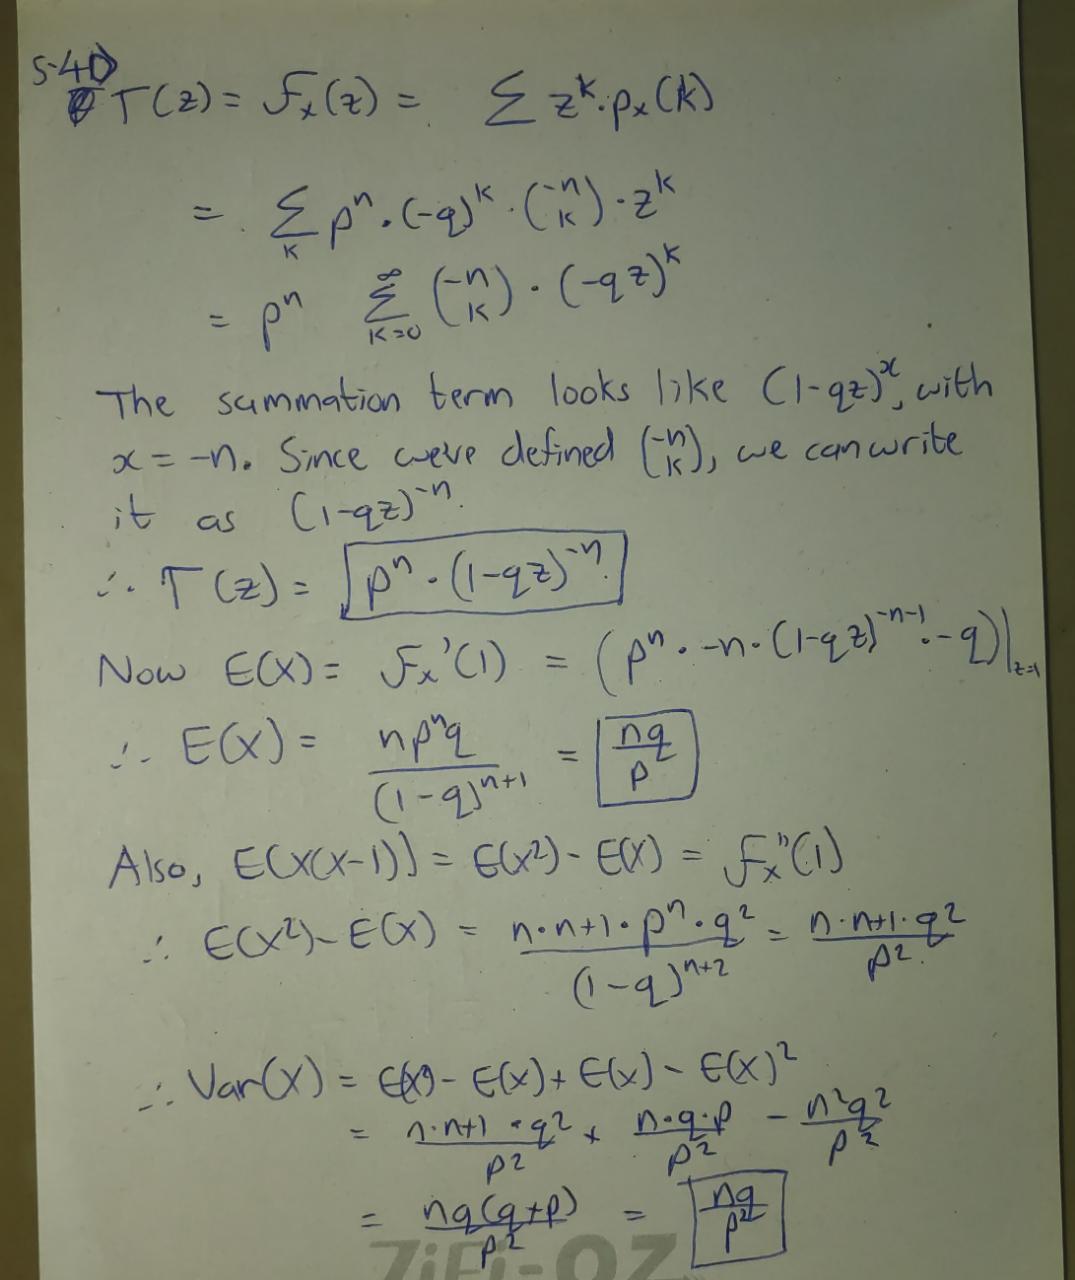 5-4D
T(z) = F_x(z) = Σ z^k · p_x(k)
= Σ_k p^n · (-q)^k · (-n k) · z^k
= p^n Σ_{k=0}^∞ (-n k) · (-qz)^k
The summation term looks like (1-qz)^x, with
x = -n. Since we've defined (-n k), we can write
it as (1-qz)^{-n}.
∴ T(z) = p^n · (1-qz)^{-n}
Now E(X) = F_x'(1) = (p^n · -n · (1-qz)^{-n-1} · -q)|_{z=1}
∴ E(X) = np^nq / (1-q)^{n+1} = nq / p
Also, E(X(X-1)) = E(X²) - E(X) = F_x''(1)
∴ E(X²) - E(X) = n·n+1·p^n·q² / (1-q)^{n+2} = n·n+1·q² / p²
∴ Var(X) = E(X²) - E(X) + E(X) - E(X)²
= n·n+1·q² / p² + n·q·p / p² - n²q² / p²
= nq(q+p) / p² = nq / p²
ZiFi-OZ